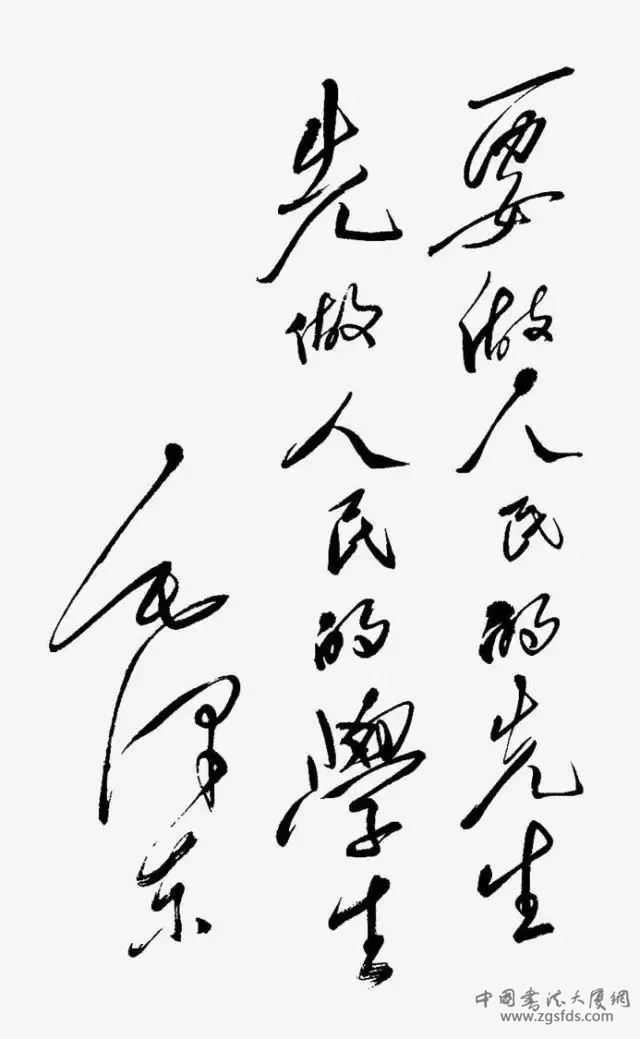 要做人民的先生
先做人民的學生
毛泽东
中国书法大厦網
www.zgsfds.com